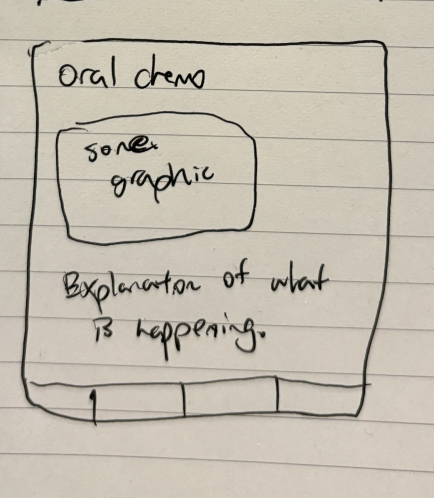 Oral chemo
some
graphic
Explanation of what
is happening.